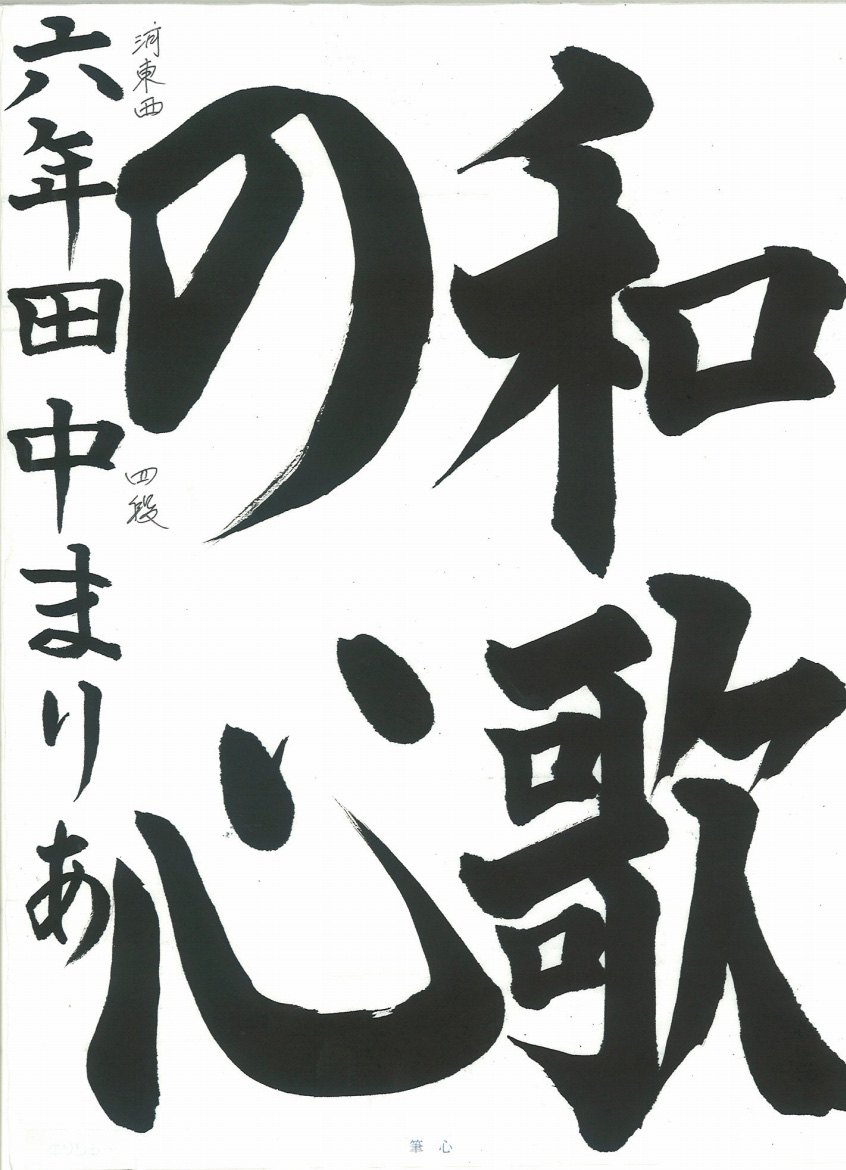 和歌
の心
河東西
四段
六年田中まりあ
筆心